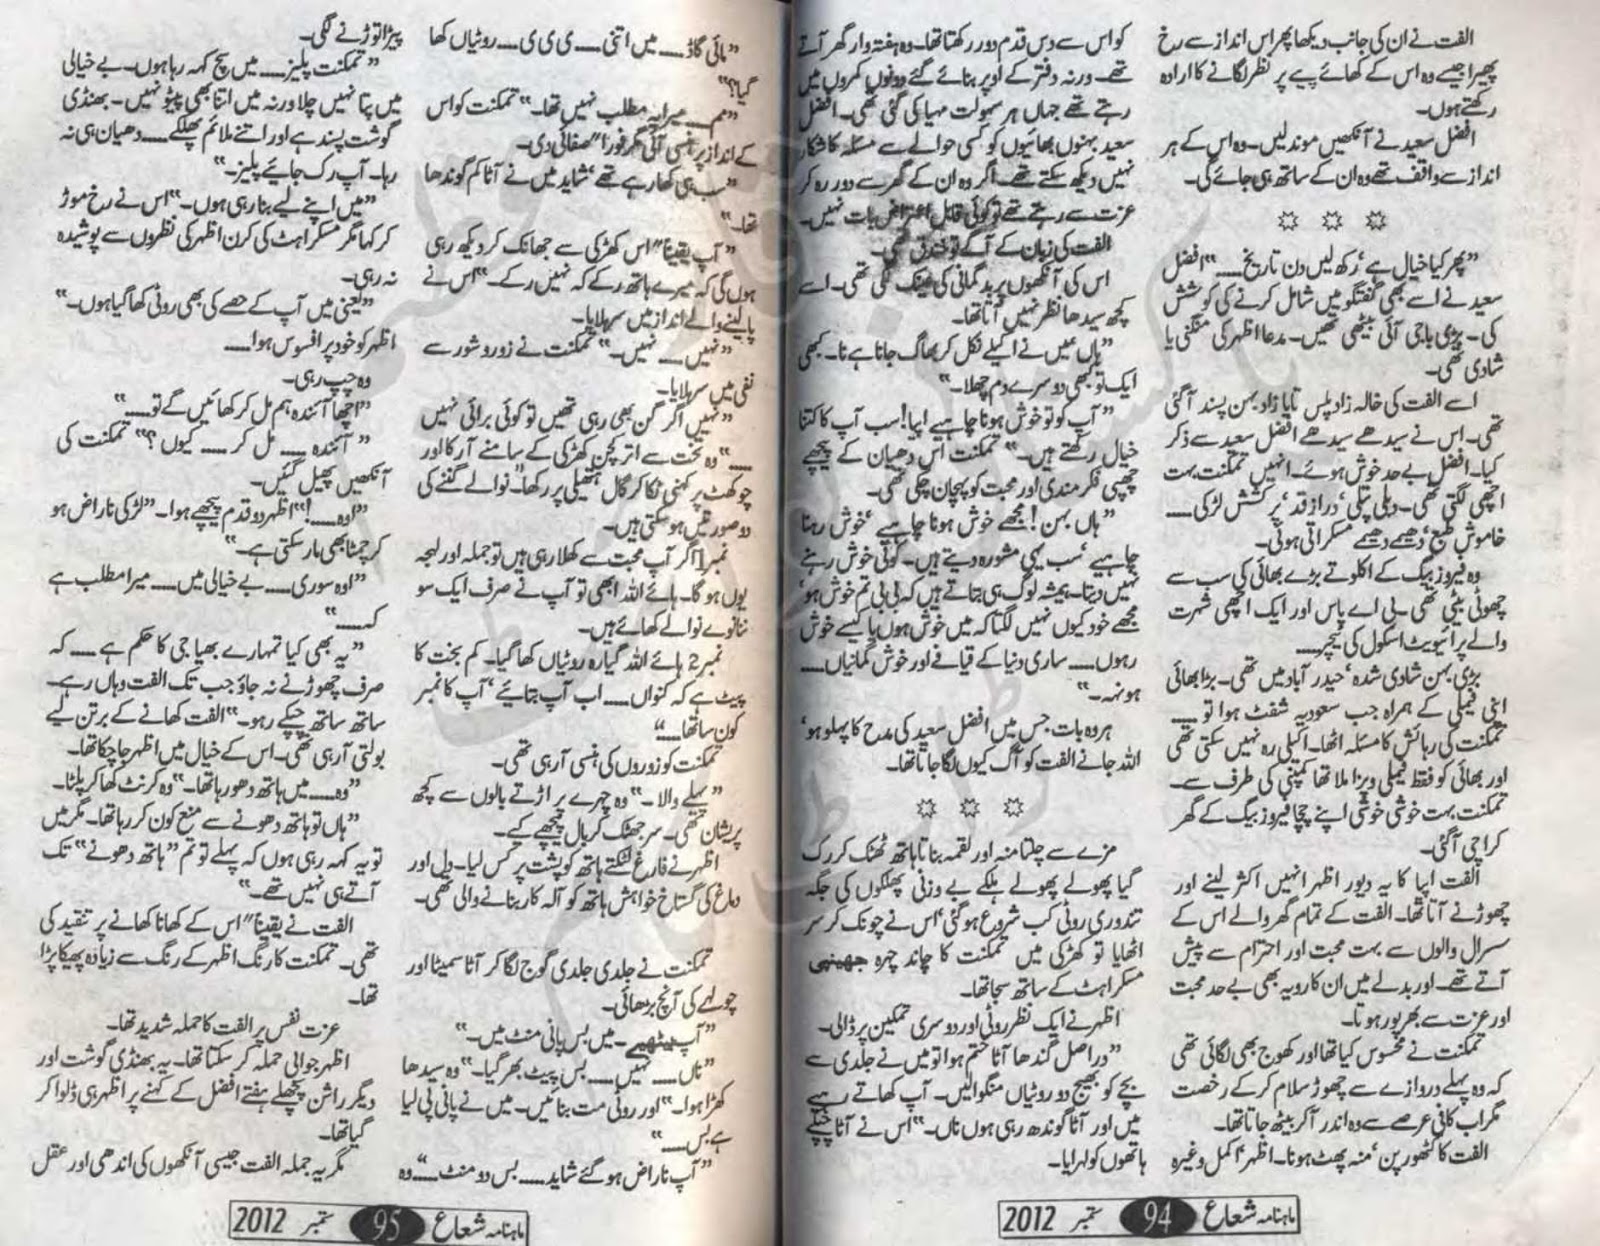 الفت نے ان کی جانب دیکھا پھر اس انداز سے رخ
پھیرا جیسے وہ اس کے کھائے پیے پر نظر لگانے کا ارادہ
رکھتے ہوں۔
افضل سعید نے آنکھیں موند لیں۔ وہ اس کے ہر
انداز سے واقف تھے وہ ان کے ساتھ ہی جائے گی۔
☼ ☼ ☼
”پھر کیا خیال ہے‘ رکھ لیں دن تاریخ ....“ افضل
سعید نے اسے بھی گفتگو میں شامل کرنے کی کوشش
کی۔ بڑی باجی آئی بیٹھی تھیں۔ مدعا اظہر کی منگنی یا
شادی تھی۔
اسے الفت کی خالہ زاد پلس تایا زاد بہن پسند آ گئی
تھی۔ اس نے سیدھے سیدھے افضل سعید سے ذکر
کیا۔ افضل بے حد خوش ہوئے۔ انہیں تمکنت بہت
اچھی لگتی تھی۔ دبلی پتلی‘ دراز قد‘ پر کشش لڑکی ....
خاموش طبع‘ دھیمے دھیمے مسکراتی ہوئی۔
وہ فیروز بیگ کے اکلوتے بڑے بھائی کی سب سے
چھوٹی بیٹی تھی۔ بی اے پاس اور ایک اچھی شہرت
والے پرائیویٹ اسکول کی ٹیچر ....
بڑی بہن شادی شدہ‘ حیدر آباد میں تھی۔ بڑا بھائی
اپنی فیملی کے ہمراہ جب سعودیہ شفٹ ہوا تو ....
تمکنت کی رہائش کا مسئلہ اٹھا۔ اکیلی رہ نہیں سکتی تھی
اور بھائی کو فقط فیملی ویزا ملا تھا کمپنی کی طرف سے۔
تمکنت بہت خوشی خوشی اپنے چچا فیروز بیگ کے گھر
کراچی آ گئی۔
الفت اپیا کا یہ دیور اظہر انہیں اکثر لینے اور
چھوڑنے آتا تھا۔ الفت کے تمام گھر والے اس کے
سسرال والوں سے بہت محبت اور احترام سے پیش
آتے تھے۔ اور بدلے میں ان کا رویہ بھی بے حد محبت
اور عزت سے بھرپور ہوتا۔
تمکنت نے محسوس کیا تھا اور کھوج بھی لگائی تھی
کہ وہ پہلے دروازے سے چھوڑ سلام کر کے رخصت
مگر اب کافی عرصے سے وہ اندر آ کر بیٹھ جاتا تھا۔
الفت کا کٹھور پن‘ منہ پھٹ ہونا۔ اظہر‘ اکمل وغیرہ
کو اس سے دس قدم دور رکھتا تھا۔ وہ ہفتہ وار گھر آتے
تھے۔ ورنہ دفتر کے اوپر بنائے گئے دونوں کمروں میں
رہتے تھے جہاں ہر سہولت مہیا کی گئی تھی۔ افضل
سعید بہنوں بھائیوں کو کسی حوالے سے مسئلہ کا شکار
نہیں دیکھ سکتے تھے۔ اگر وہ ان کے گھر سے دور رہ کر
عزت سے رہتے تھے تو کوئی قابل اعتراض بات نہیں۔
الفت کی زبان کے آگے تو خندق تھی۔
اس کی آنکھوں پر بدگمانی کی عینک لگی تھی۔ اسے
کچھ سیدھا نظر نہیں آتا تھا۔
”ہاں میں نے اکیلے نکل کر بھاگ جانا ہے نا۔ کبھی
ایک تو کبھی دوسرے دم چھلا۔“
”آپ کو تو خوش ہونا چاہیے اپیا! سب آپ کا کتنا
خیال رکھتے ہیں۔“ تمکنت اس دھیان کے پیچھے
چھپی فکر مندی اور محبت کو پہچان چکی تھی۔
”ہاں بہن! مجھے خوش ہونا چاہیے‘ خوش رہنا
چاہیے‘ سب یہی مشورہ دیتے ہیں۔ کوئی خوش رہنے
نہیں دیتا۔ ہمیشہ لوگ ہی بتاتے ہیں کہ بی بی تم خوش ہو‘
مجھے خود کیوں نہیں لگتا کہ میں خوش ہوں یا کیسے خوش
رہوں .... ساری دنیا کے قیافے اور خوش گمانیاں ....
ہونہہ۔“
ہر وہ بات‘ جس میں افضل سعید کی مدح کا پہلو ہو‘
اللہ جانے الفت کو آگ کیوں لگا جاتا تھا۔
☼ ☼ ☼
مزے سے چلتا منہ اور لقمہ بناتا ہاتھ ٹھٹک کر رک
گیا پھولے پھولے ہلکے بے وزنی پھلکوں کی جگہ
تندوری روٹی کب شروع ہو گئی‘ اس نے چونک کر سر
اٹھایا تو کھڑکی میں تمکنت کا چاند چہرہ جھینپی
مسکراہٹ کے ساتھ سجا تھا۔
اظہر نے ایک نظر روٹی اور دوسری تمکین پر ڈالی۔
”دراصل گندھا آٹا ختم ہوا تو میں نے جلدی سے
بچے کو بھیج دو روٹیاں منگوا لیں۔ آپ کھاتے رہے
میں اور آٹا گوندھ رہی ہوں ناں۔“ اس نے آٹا چپکے
ہاتھوں کو لہرایا۔
ماہنامہ شعاع 94 ستمبر 2012
”مائی گاڈ .... میں اتنی .... ی ی ی .... روٹیاں کھا
گیا؟“
”مم .... میرا یہ مطلب نہیں تھا۔“ تمکنت کو اس
کے انداز پر ہنسی آئی مگر فوراً صفائی دی۔
”سب ہی کھا رہے تھے‘ شاید میں نے آٹا کم گوندھا
تھا۔“
”آپ یقیناً اس کھڑکی سے جھانک کر دیکھ رہی
ہوں گی کہ میرے ہاتھ رکے کہ نہیں رکے۔“ اس نے
پا لینے والے انداز میں سر ہلایا۔
”نہیں .... نہیں۔“ تمکنت نے زور و شور سے
نفی میں سر ہلایا۔
”نہیں اگر گن بھی رہی تھیں تو کوئی برائی نہیں
....“ وہ تخت سے اتر کچن کھڑکی کے سامنے آ رکا اور
چوکھٹ پر کہنی ٹکا کر گال ہتھیلی پر رکھا۔ ”نوالے گننے کی
دو صورتیں ہو سکتی ہیں۔
نمبر 1 اگر آپ محبت سے کھلا رہی ہیں تو جملہ اور لہجہ
یوں ہو گا۔ ہائے اللہ ابھی تو آپ نے صرف ایک سو
ننانوے نوالے کھائے ہیں۔
نمبر 2 ہائے اللہ گیارہ روٹیاں کھا گیا۔ کم بخت کا
پیٹ ہے کہ کنواں .... اب آپ بتائیے‘ آپ کا نمبر
کون سا تھا ....“
تمکنت کو زوروں کی ہنسی آ رہی تھی۔
”پہلے والا۔“ وہ چہرے پر اڑتے بالوں سے کچھ
پریشان تھی۔ سر جھٹک کر بال پیچھے کیے۔
اظہر نے فارغ لٹکتے ہاتھ کو پشت پر کس لیا۔ دل اور
دماغ کی گستاخ خواہش ہاتھ کو آلہ کار بنانے والی تھی۔
تمکنت نے جلدی جلدی گوج لگا کر آٹا سمیٹا اور
چولہے کی آنچ بڑھائی۔
”آپ بیٹھیے۔ میں بس پانی منٹ میں۔“
”ناں .... نہیں .... بس پیٹ بھر گیا۔“ وہ سیدھا
کھڑا ہوا۔ ”اور روٹی مت بنائیں۔ میں نے پانی پی لیا
ہے بس ....“
”آپ ناراض ہو گئے شاید .... بس دو منٹ ....“ وہ
پیڑا توڑنے لگی۔
”تمکنت پلیز .... میں سچ کہہ رہا ہوں۔ بے خیالی
میں پتا نہیں چلا ورنہ میں اتنا بھی پیٹو نہیں۔ بھنڈی
گوشت پسند ہے اور اتنے ملائم پھلکے .... دھیان ہی نہ
رہا۔ آپ رک جائیے پلیز۔“
”میں اپنے لیے بنا رہی ہوں۔“ اس نے رخ موڑ
کر کہا مگر مسکراہٹ کی کرن اظہر کی نظروں سے پوشیدہ
نہ رہی۔
”یعنی میں آپ کے حصے کی بھی روٹی کھا گیا ہوں۔“
اظہر کو خود پر افسوس ہوا ....
وہ چپ رہی۔
”اچھا آئندہ ہم مل کر کھائیں گے تو ....“
”آئندہ .... مل کر .... کیوں؟“ تمکنت کی
آنکھیں پھیل گئیں۔
”اوہ ....!“ اظہر دو قدم پیچھے ہوا۔ ”لڑکی ناراض ہو
کر چمٹا بھی مار سکتی ہے۔“
”اوہ سوری .... بے خیالی میں .... میرا مطلب ہے
کہ ....“
”یہ بھی کیا تمہارے بھیا جی کا حکم ہے .... کہ
صرف چھوڑنے نہ جاؤ جب تک الفت وہاں رہے۔
ساتھ ساتھ چپکے رہو۔“ الفت کھانے کے برتن لیے
بولتی آ رہی تھی۔ اس کے خیال میں اظہر جا چکا تھا۔
”وہ .... میں ہاتھ دھو رہا تھا۔“ وہ کرنٹ کھا کر پلٹا۔
”ہاں تو ہاتھ دھونے سے منع کون کر رہا تھا۔ مگر میں
تو یہ کہہ رہی ہوں کہ پہلے تو تم ”ہاتھ دھونے“ تک
آتے ہی نہیں تھے۔“
الفت نے یقیناً اس کے کھانا کھانے پر تنقید کی
تھی۔ تمکنت کا رنگ اظہر کے رنگ سے زیادہ پھیکا پڑا
تھا۔
عزت نفس پر الفت کا حملہ شدید تھا۔
اظہر جوابی حملہ کر سکتا تھا۔ یہ بھنڈی گوشت اور
دیگر راشن پچھلے ہفتے افضل کے کہنے پر اظہر ہی ڈلوا کر
گیا تھا۔
مگر یہ جملہ الفت جیسی آنکھوں کی اندھی اور عقل
ماہنامہ شعاع 95 ستمبر 2012